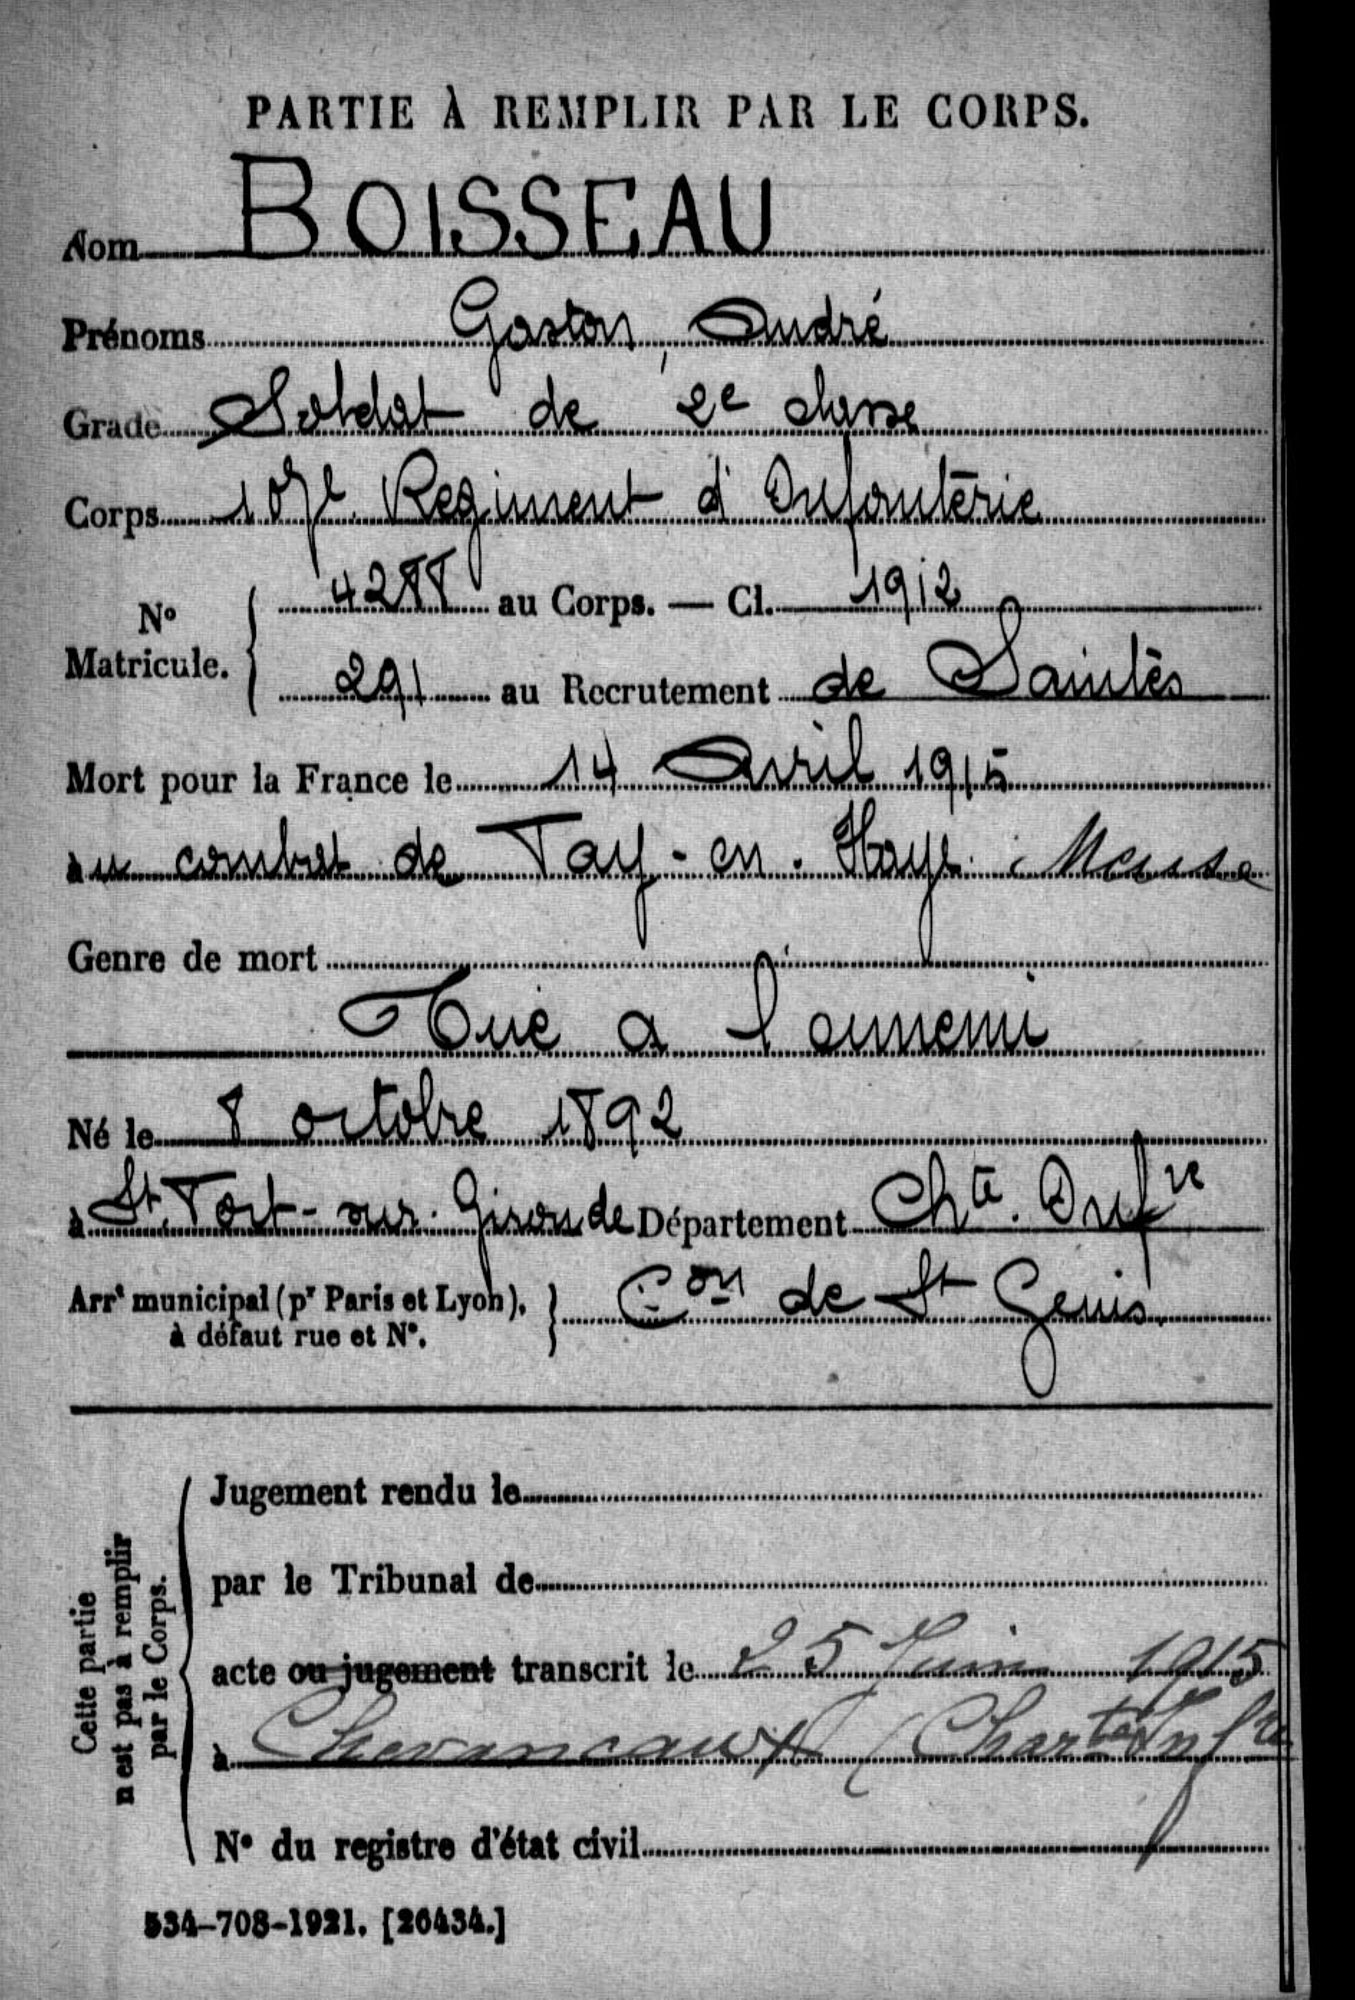 PARTIE À REMPLIR PAR LE CORPS.
Nom BOISSEAU
Prénoms Gaston, André
Grade Soldat de 2e classe
Corps 107e Regiment d'Infanterie
No Matricule. 4288 au Corps. — Cl. 1912
291 au Recrutement de Saintes
Mort pour la France le 14 Avril 1915
au combat de Fay-en-Haye Meuse
Genre de mort
Tué a l'ennemi
Né le 8 octobre 1892
à St. Fort-sur-Gironde Département Chte. Infre
Arrt municipal (pr Paris et Lyon), à défaut rue et No. Con de St Genis.
Cette partie n'est pas à remplir par le Corps.
Jugement rendu le
par le Tribunal de
acte ou jugement transcrit le 25 Juin 1915
à Chevanceaux (Charte Infre
No du registre d'état civil
534-708-1921. [26434.]